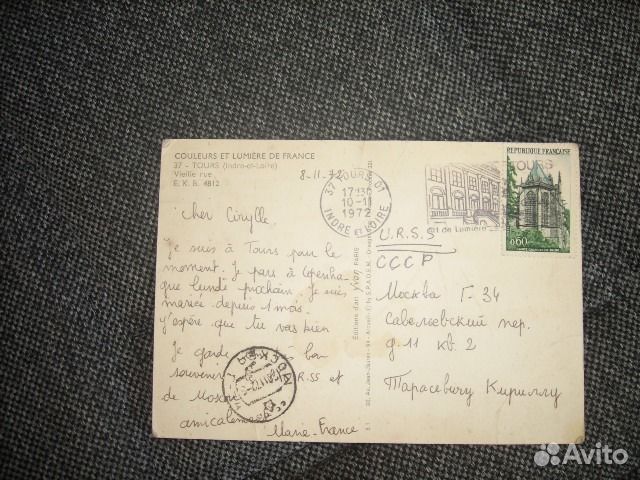 COULEURS ET LUMIÈRE DE FRANCE
37 - TOURS (Indre-et-Loire)
Vieille rue
E. K. B. 4812
8-11-72
cher Cirylle,
Je suis à Tours pour le
moment. Je pars à Copenha-
gue lundi prochain. Je suis
mariée depuis 1 mois.
J'espère que tu vas bien
Je garde bon
souvenir RSS et
de Moscou
amicalement
Marie-France
МОСКВА
Editions d'art YVON PARIS
37 TOURS 01
17H30
10-11
1972
INDRE ET LOIRE
TOURS
et de Lumière
REPUBLIQUE FRANCAISE
0,60
U.R.S.S
СССР
Москва Г-34
Савельевский пер.
д. 11 кв. 2
Тарасевичу Кириллу
Avito